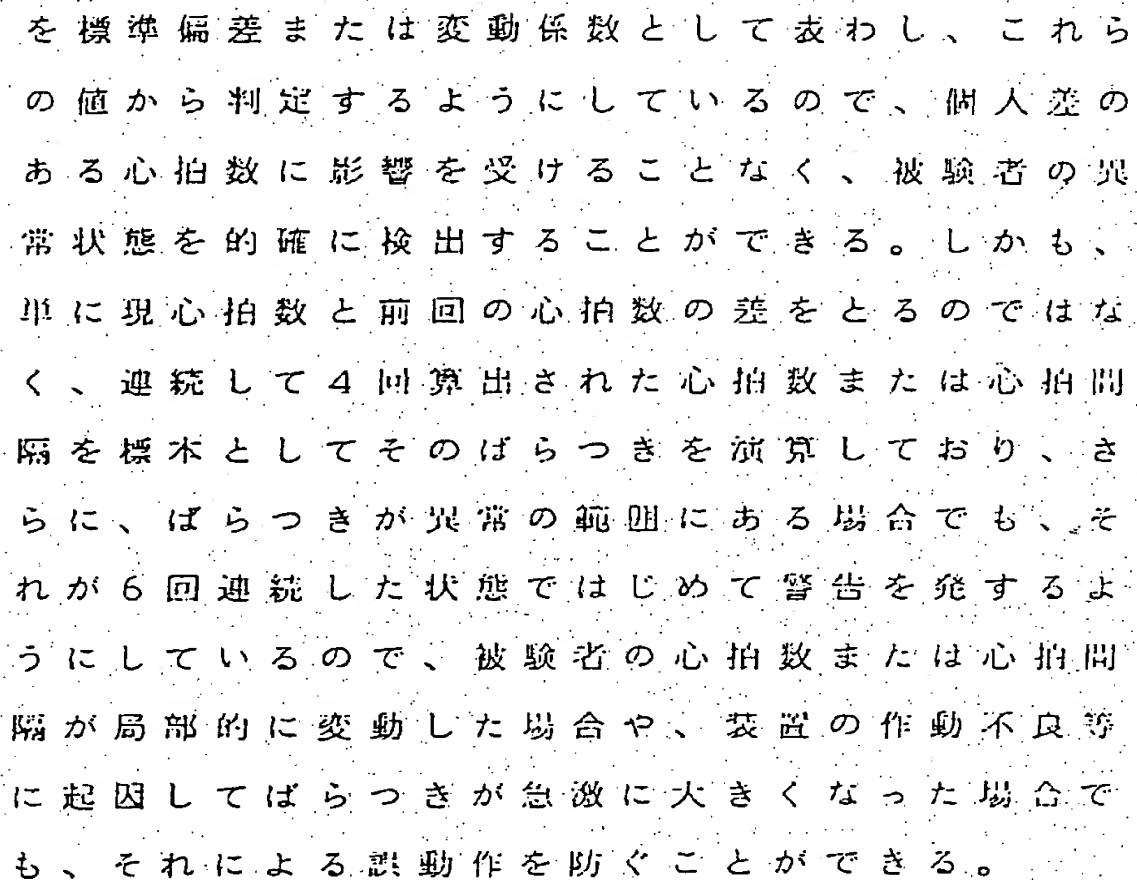 を標準偏差または変動係数として表わし、これら
の値から判定するようにしているので、個人差の
ある心拍数に影響を受けることなく、被験者の異
常状態を的確に検出することができる。しかも、
単に現心拍数と前回の心拍数の差をとるのではな
く、連続して4回算出された心拍数または心拍間
隔を標本としてそのばらつきを演算しており、さ
らに、ばらつきが異常の範囲にある場合でも、そ
れが6回連続した状態ではじめて警告を発するよ
うにしているので、被験者の心拍数または心拍間
隔が局部的に変動した場合や、装置の作動不良等
に起因してばらつきが急激に大きくなった場合で
も、それによる誤動作を防ぐことができる。